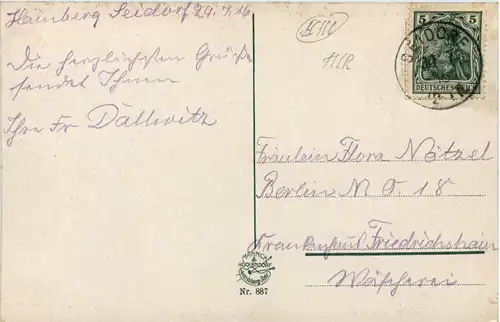 Hainberg Seidorf 29.7.16
Die herzlichsten Grüße
sendet Ihnen
Ihre Fr. Dallwitz
5 5
SEIDORF
DEUTSCHES REICH
Fräulein Flora Nötzel
Berlin N O. 18
Krankenhaus Friedrichshain
Wäscherei
Nr. 887